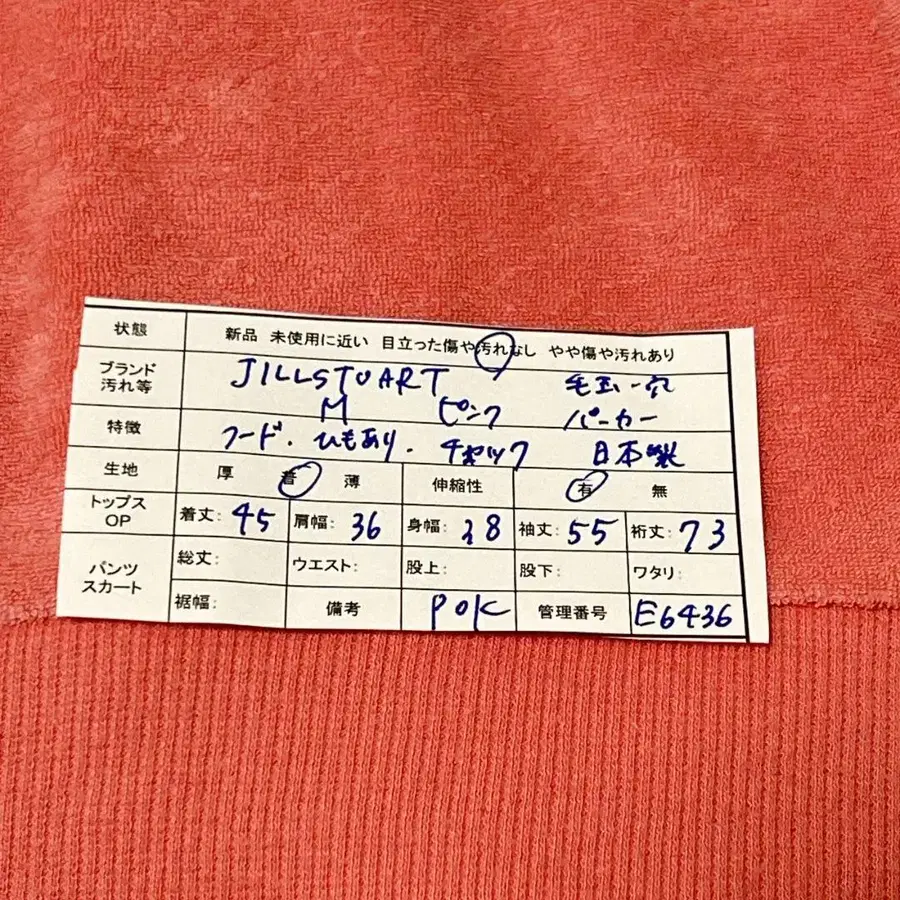 状態 新品 未使用に近い 目立った傷や汚れなし やや傷や汚れあり
ブランド 汚れ等 JILLSTUART 毛玉-穴
M ピンク パーカー
特徴 フード・ひもあり・チャック 日本製
生地 厚 着 薄 伸縮性 有 無
トップス OP 着丈: 45 肩幅: 36 身幅: 38 袖丈: 55 裄丈: 73
パンツ スカート 総丈: ウエスト: 股上: 股下: ワタリ:
裾幅: 備考 POK 管理番号 E6436